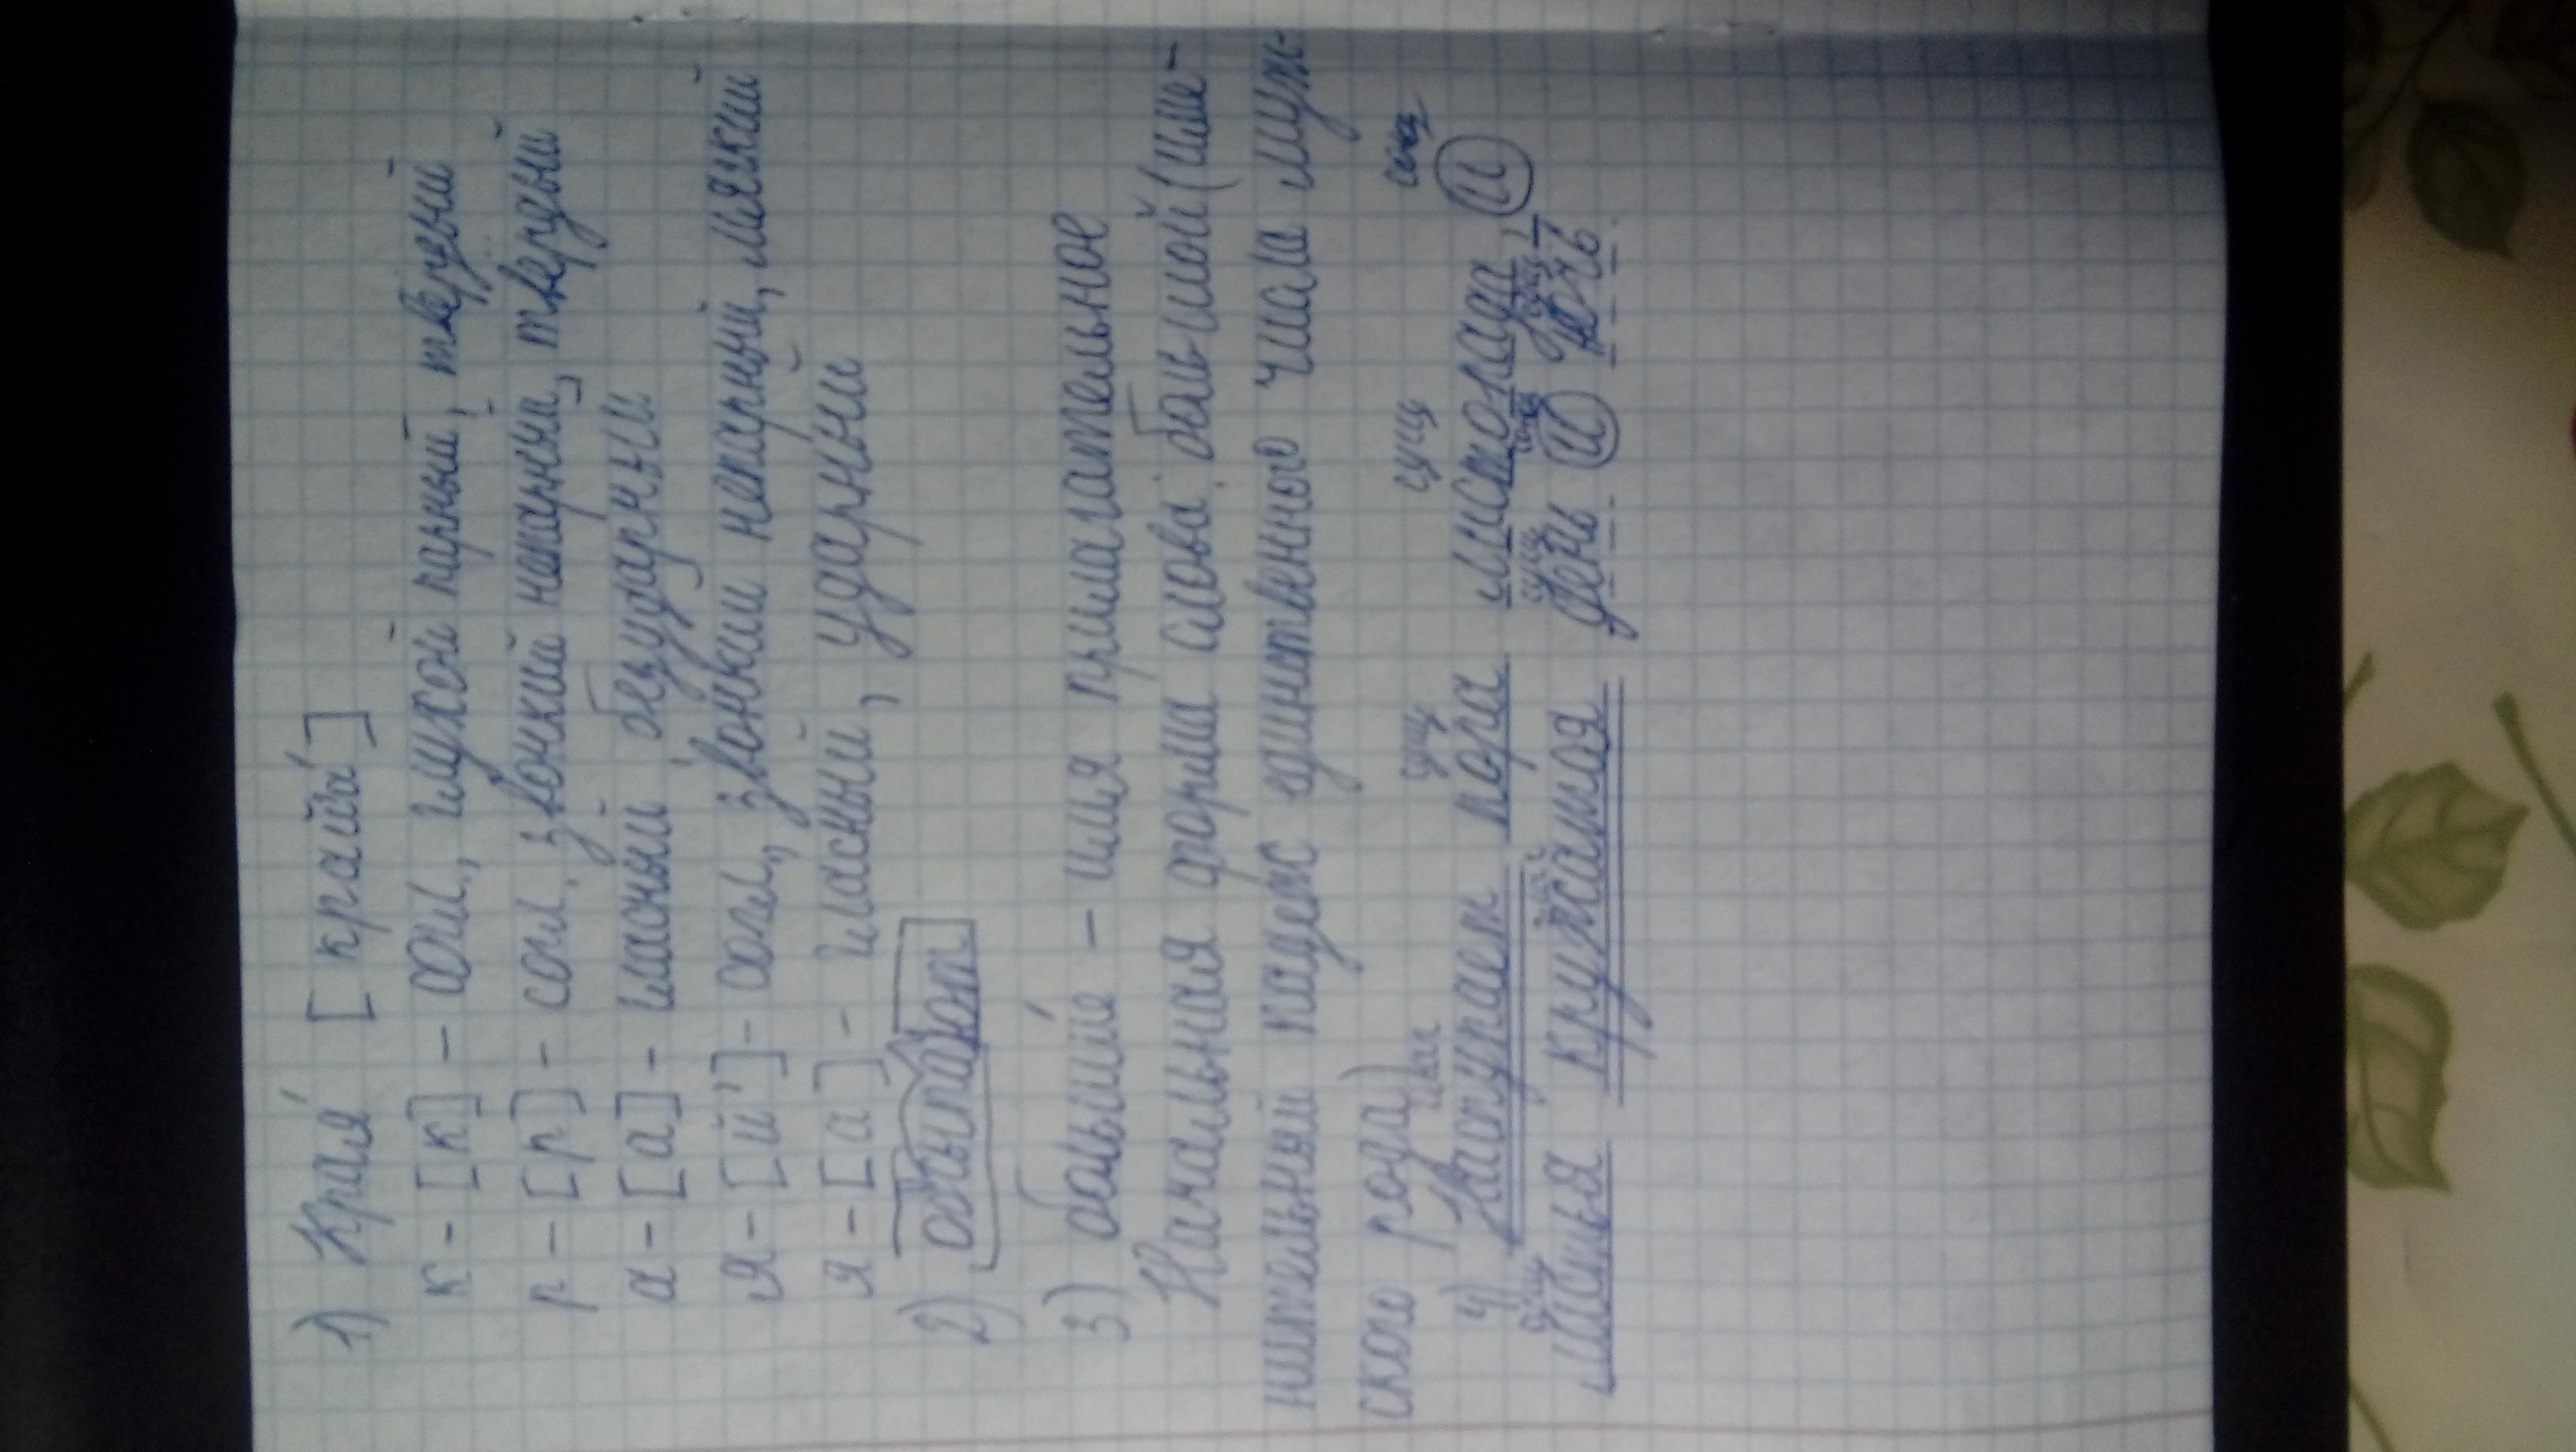 1) Края́ [край'а́]
к - [к] - согл., глухой парный, твердый
р - [р] - согл., звонкий непарный, твердый
а - [а] - гласный безударный
я - [й'] - согл., звонкий непарный, мягкий
я - [а] - гласный, ударный
2) осыпают
3) больши́е - имя прилагательное
Начальная форма слова: большой (име-
нительный падеж единственного числа муж-
ского рода)
глаг сущ сущ союз
4) Наступает пора листопада, и
сущ глаг сущ союз сущ
листья кружатся день и ночь.